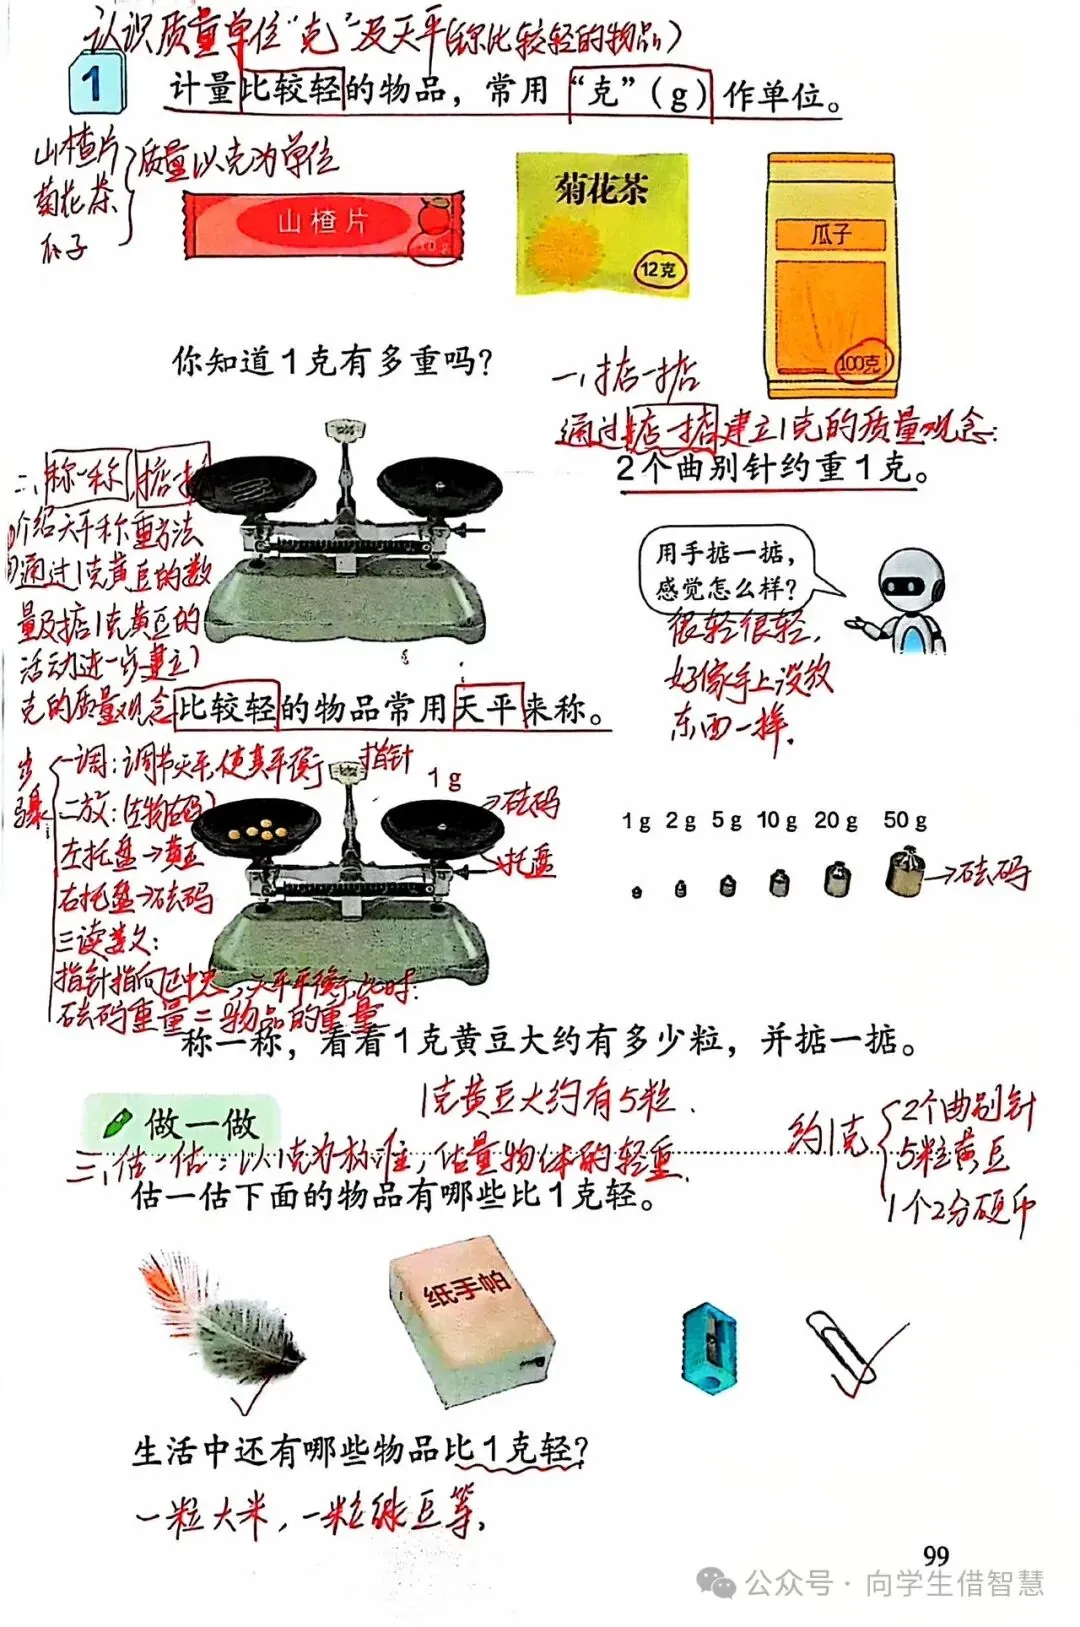 认识质量单位“克”及天平(称比较轻的物品)
1
计量比较轻的物品，常用“克”(g)作单位。
山楂片
菊花茶
瓜子
质量以克为单位
山楂片
10g
菊花茶
12克
瓜子
100克
你知道1克有多重吗?
一、掂一掂
通过掂一掂建立1克的质量观念:
2个曲别针约重1克。
二、称一称,掂一掂
介绍天平称重方法
通过1克黄豆的数
量及掂1克黄豆的
活动进一步建立1
克的质量观念
用手掂一掂，
感觉怎么样?
很轻很轻,
好像手上没放
东西一样.
比较轻的物品常用天平来称。
步骤
一调:调节天平,使其平衡
二放:(左物右码)
左托盘→黄豆
右托盘→砝码
三读数:
指针指向正中央,天平平衡,此时:
砝码重量=物品的重量
指针
1g
砝码
托盘
1g 2g 5g 10g 20g 50g
砝码
称一称，看看1克黄豆大约有多少粒，并掂一掂。
1克黄豆大约有5粒.
做一做
约1克
2个曲别针
5粒黄豆
1个2分硬币
三、估一估:以1克为标准,估量物体的轻重.
估一估下面的物品有哪些比1克轻。
纸手帕
生活中还有哪些物品比1克轻?
一粒大米,一粒绿豆等.
99
公众号·向学生借智慧